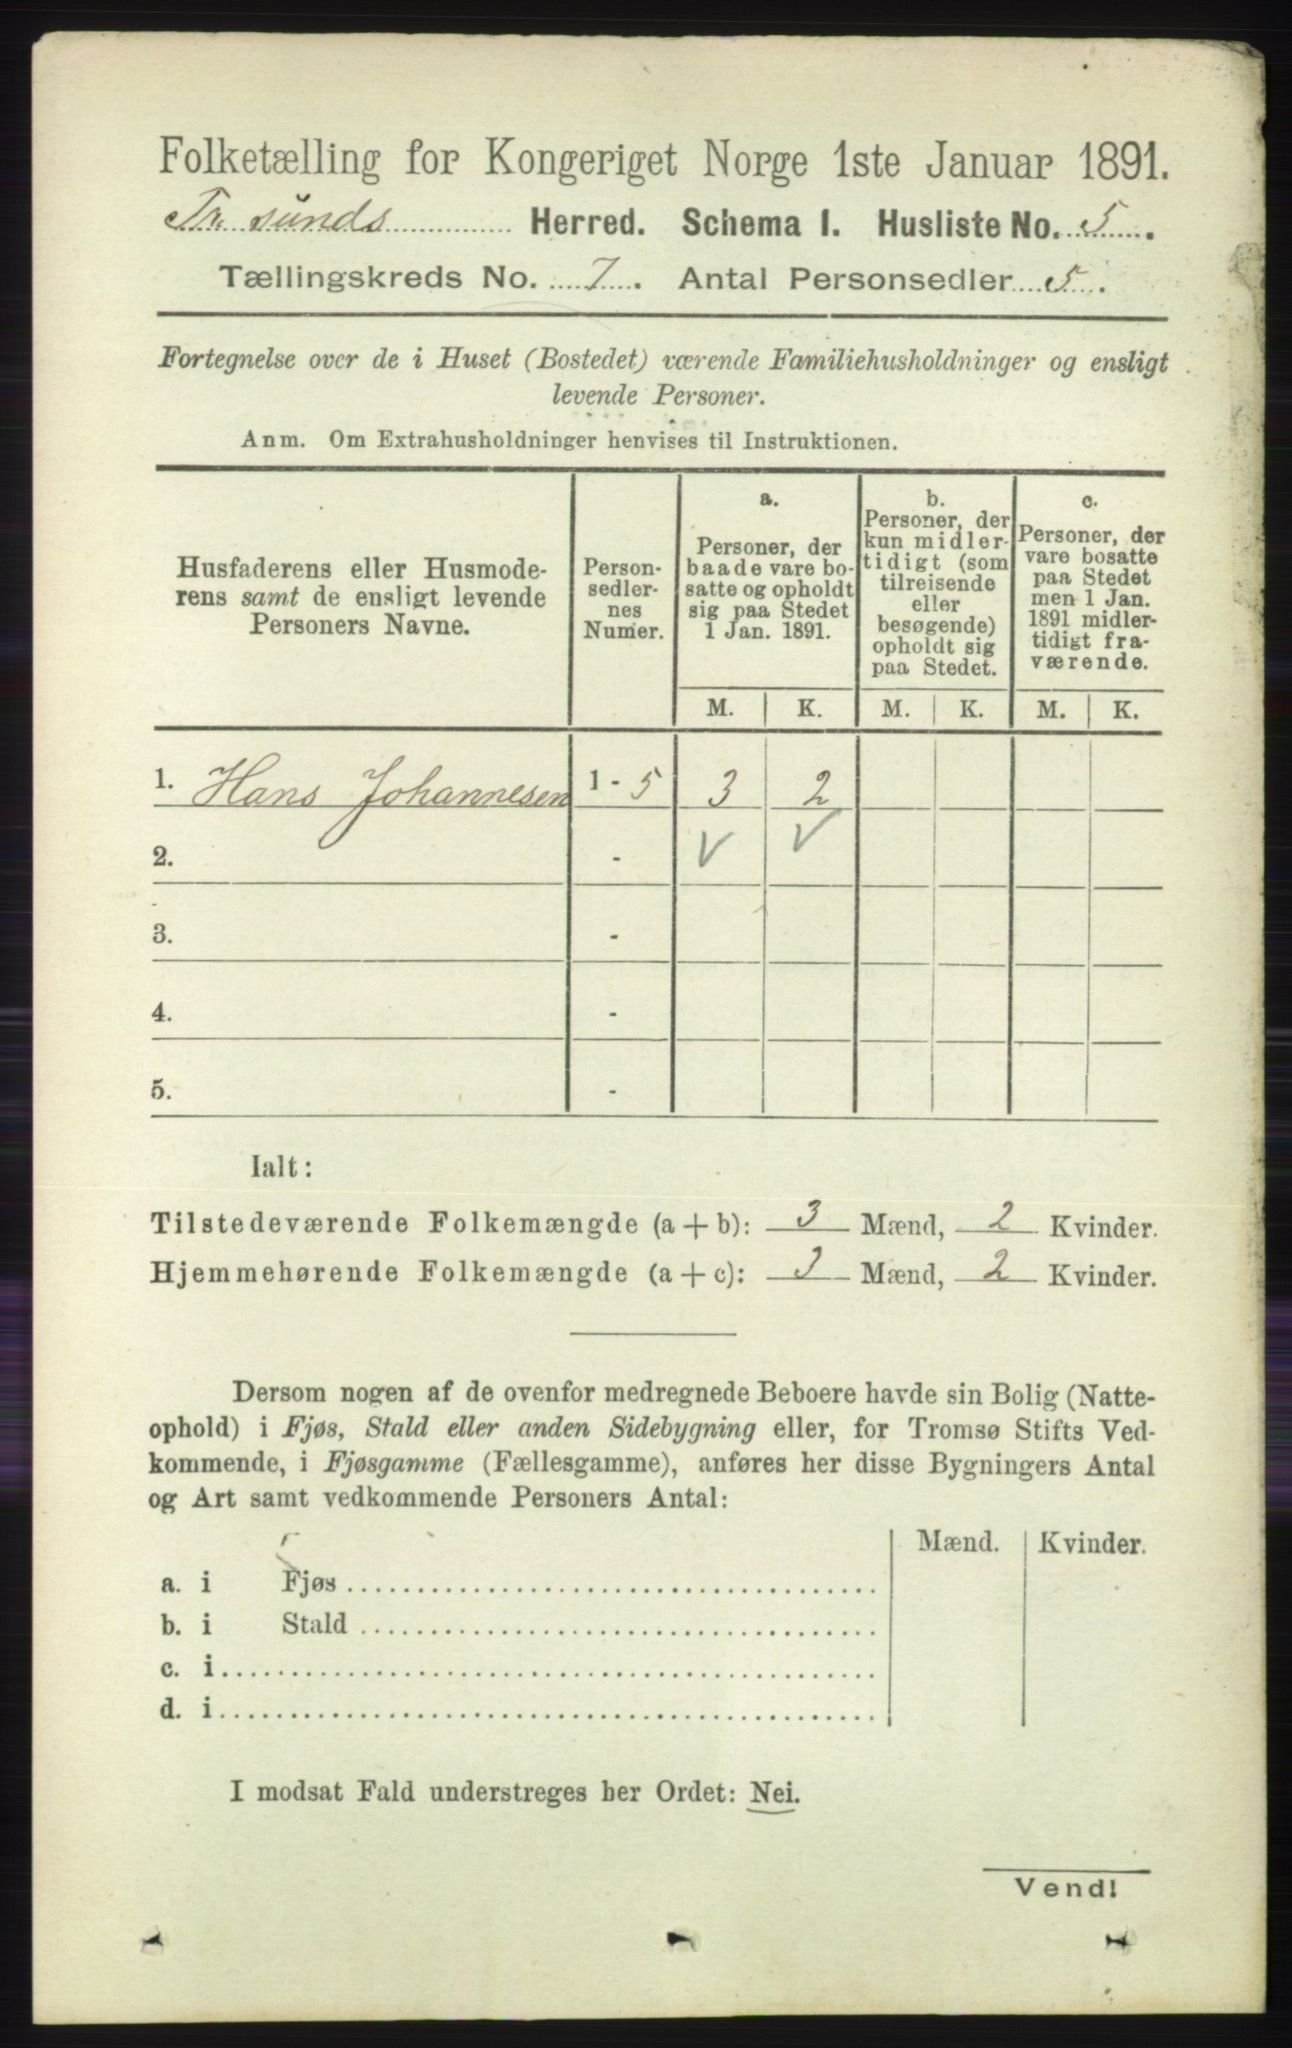 Folketælling for Kongeriget Norge 1ste Januar 1891.
Tr. sunds Herred. Schema I. Husliste No. 5.
Tællingskreds No. 7. Antal Personsedler 5.
Fortegnelse over de i Huset (Bostedet) værende Familiehusholdninger og ensligt
levende Personer.
Anm. Om Extrahusholdninger henvises til Instruktionen.
Husfaderens eller Husmode-
rens samt de ensligt levende
Personers Navne.
Person-
sedler-
nes
Numer.
a.
Personer, der
baade vare bo-
satte og opholdt
sig paa Stedet
1 Jan. 1891.
b.
Personer, der
kun midler-
tidigt (som
tilreisende
eller
besøgende)
opholdt sig
paa Stedet.
c.
Personer, der
vare bosatte
paa Stedet
men 1 Jan.
1891 midler-
tidigt fra-
værende.
M. K. M. K. M. K.
1. Hans Johannesen 1 - 5 3 2
2. - V V
3. -
4. -
5. -
Ialt:
Tilstedeværende Folkemængde (a + b): 3 Mænd, 2 Kvinder.
Hjemmehørende Folkemængde (a + c): 3 Mænd, 2 Kvinder.
Dersom nogen af de ovenfor medregnede Beboere havde sin Bolig (Natte-
ophold) i Fjøs, Stald eller anden Sidebygning eller, for Tromsø Stifts Ved-
kommende, i Fjøsgamme (Fællesgamme), anføres her disse Bygningers Antal
og Art samt vedkommende Personers Antal:
Mænd. Kvinder.
a. i Fjøs
b. i Stald
c. i
d. i
I modsat Fald understreges her Ordet: Nei.
Vend!